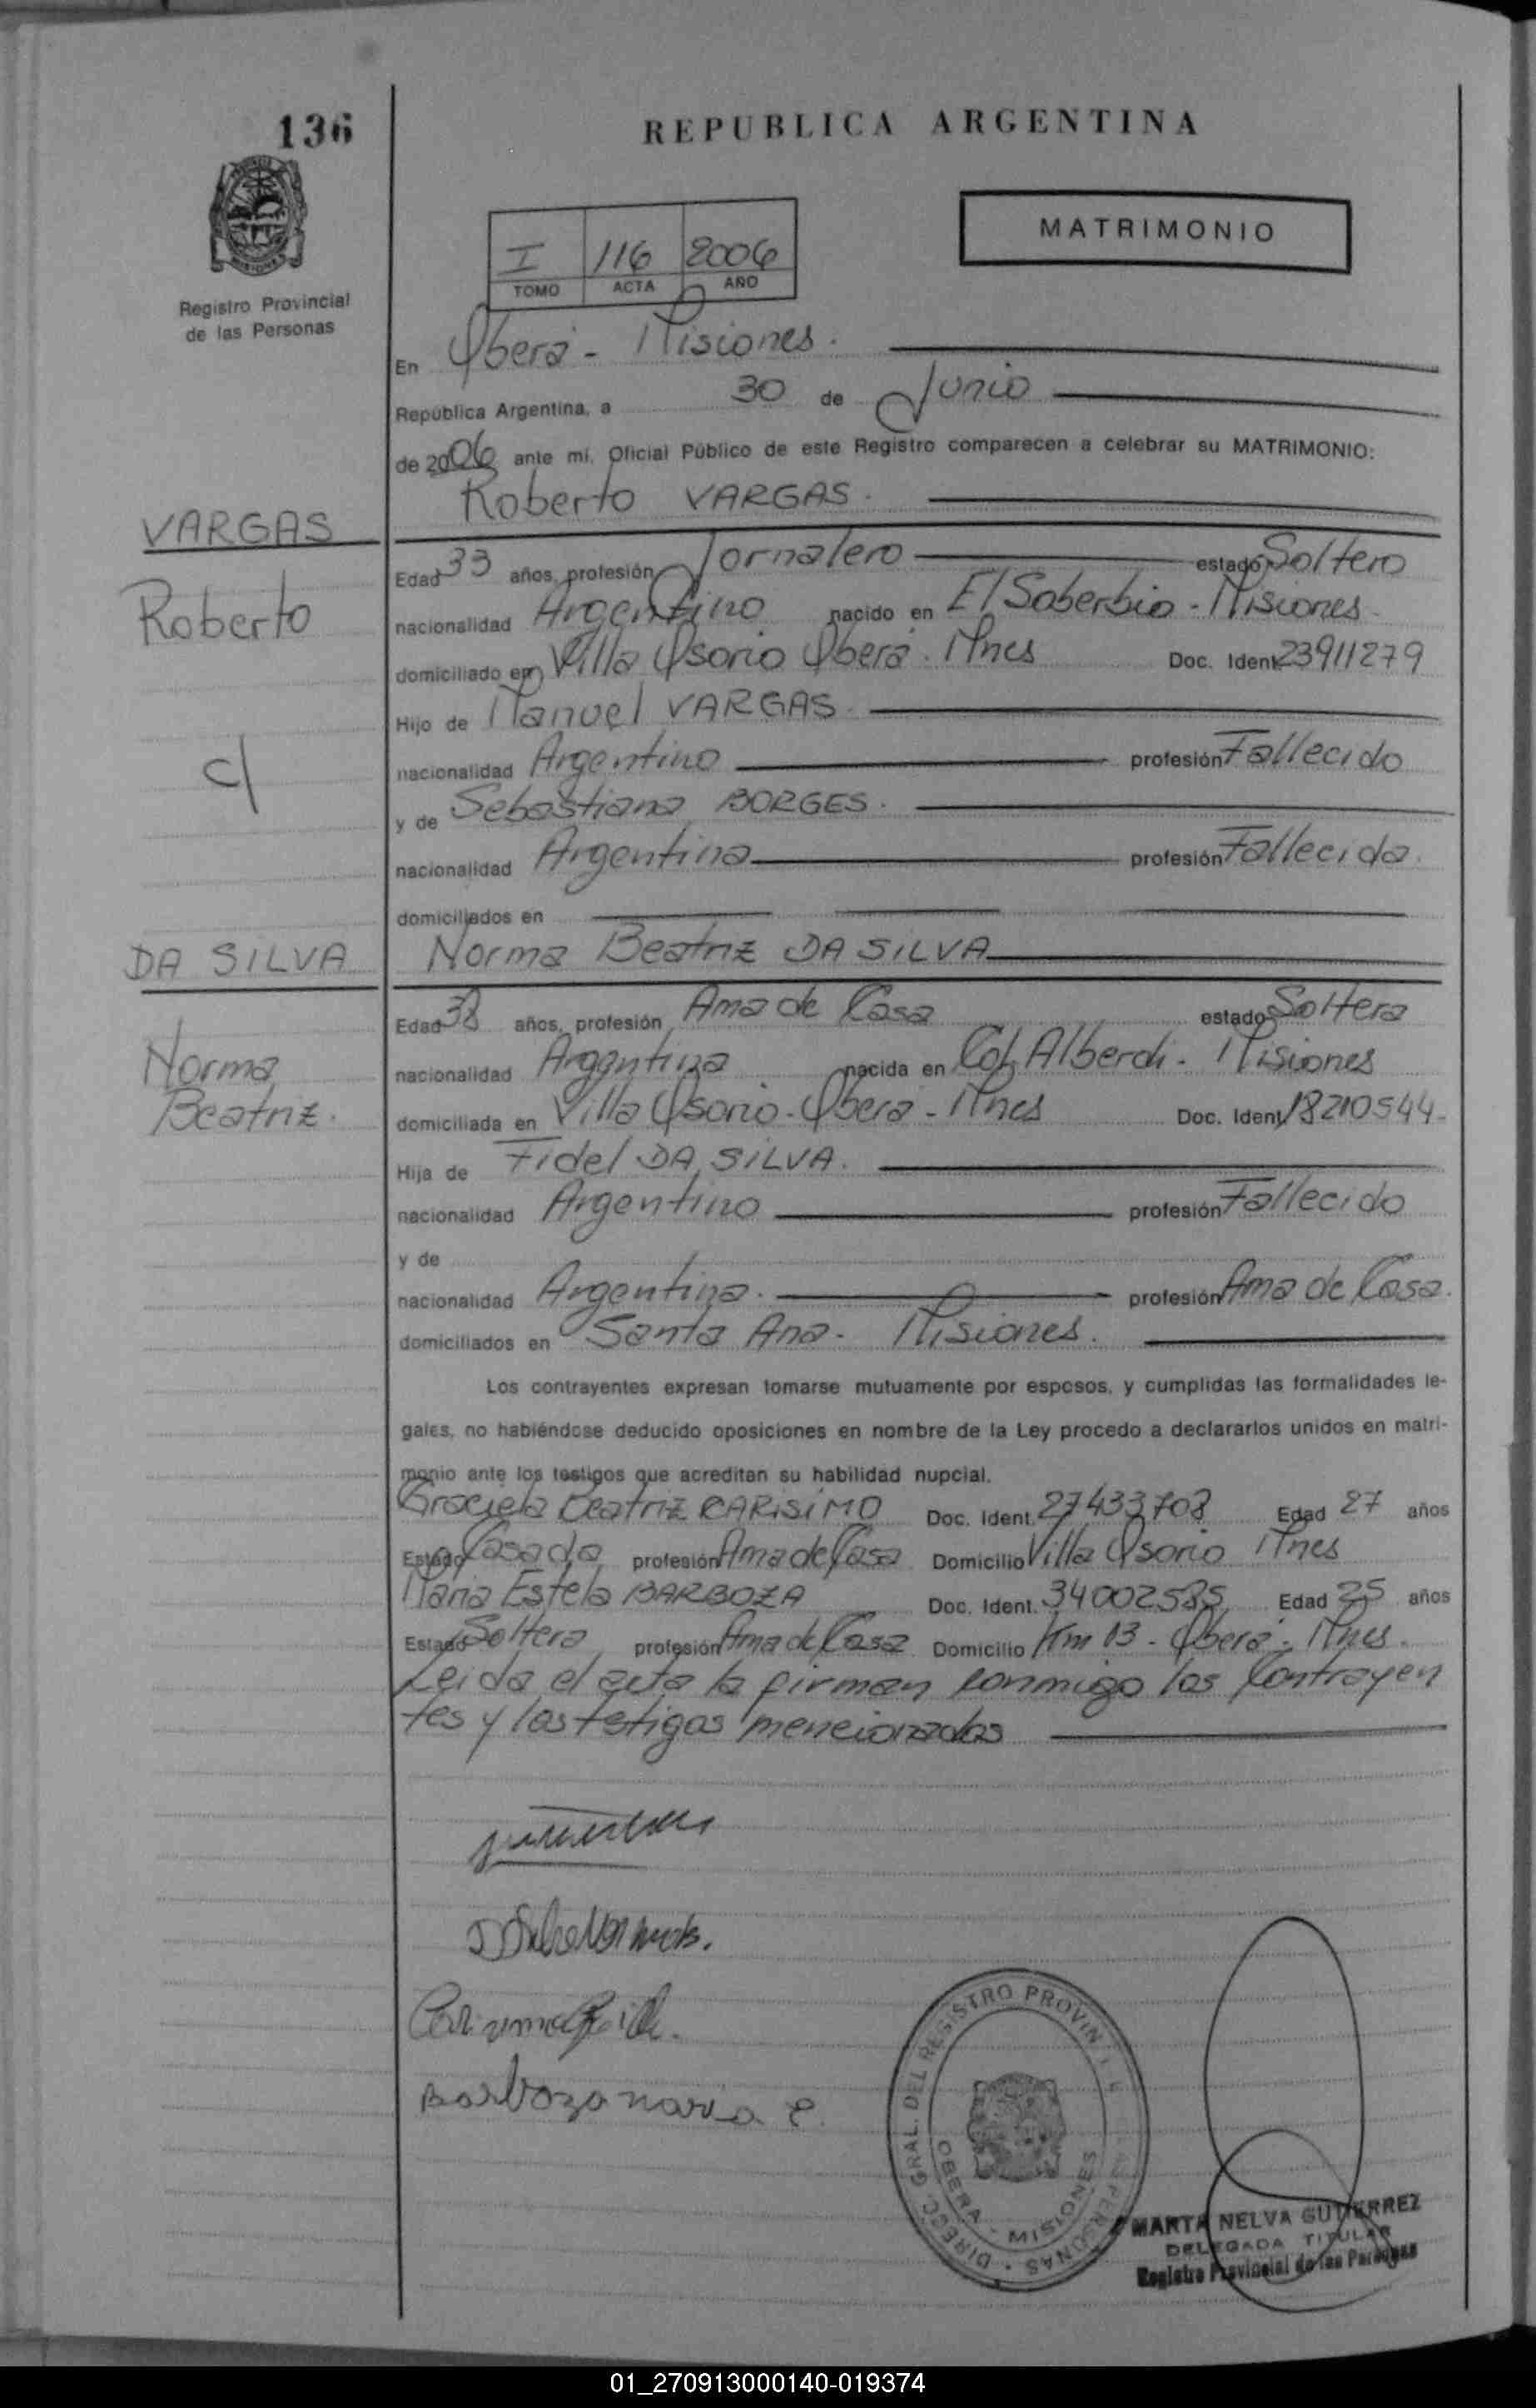 136
REPUBLICA ARGENTINA
MATRIMONIO
I 116 2006
TOMO ACTA AÑO
Registro Provincial
de las Personas
En Oberá - Misiones.
República Argentina, a 30 de Junio
de 2006 ante mí, Oficial Público de este Registro comparecen a celebrar su MATRIMONIO:
Roberto VARGAS.
VARGAS
Roberto
c/
Edad 33 años, profesión Jornalero estado Soltero
nacionalidad Argentino nacido en El Soberbio - Misiones
domiciliado en Villa Osorio Oberá - Mnes Doc. Ident. 23911279
Hijo de Manuel VARGAS
nacionalidad Argentino profesión Fallecido
y de Sebastiana BORGES.
nacionalidad Argentina profesión Fallecida.
domiciliados en
DA SILVA
Norma
Beatriz.
Norma Beatriz DA SILVA
Edad 38 años, profesión Ama de Casa estado Soltera
nacionalidad Argentina nacida en Col. Alberdi - Misiones
domiciliada en Villa Osorio - Oberá - Mnes Doc. Ident. 18210544-
Hija de Fidel DA SILVA.
nacionalidad Argentino profesión Fallecido
y de
nacionalidad Argentina. profesión Ama de Casa.
domiciliados en Santa Ana - Misiones.
Los contrayentes expresan tomarse mutuamente por esposos, y cumplidas las formalidades le-
gales, no habiéndose deducido oposiciones en nombre de la Ley procedo a declararlos unidos en matri-
monio ante los testigos que acreditan su habilidad nupcial.
Graciela Beatriz CARISIMO Doc. Ident. 27433708 Edad 27 años
Estado Casada profesión Ama de Casa Domicilio Villa Osorio Mnes
Maria Estela BARBOZA Doc. Ident. 34002585 Edad 25 años
Estado Soltera profesión Ama de Casa Domicilio Km 13 - Oberá - Mnes.
Leida el acta la firman conmigo los Contrayen
tes y los tetigos mencionados
Barboza maria e.
DIRECC. GRAL. DEL REGISTRO PROVIN PERSONAS
OBERA - MISIONES
MARTA NELVA GUTIERREZ
DELEGADA TITULAR
Registro Provincial de las Personas
01_270913000140-019374